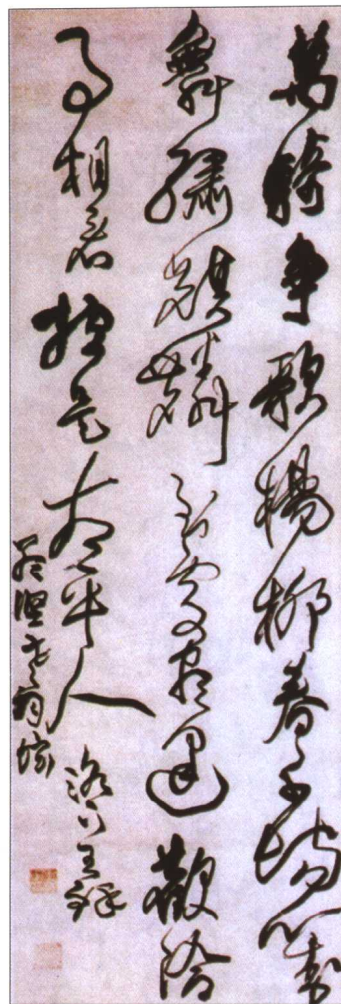 萬騎爭歌楊柳春千場對
舞繡騏驎到處盡逢歡洽
事相看總是太平人 洛下王鐸